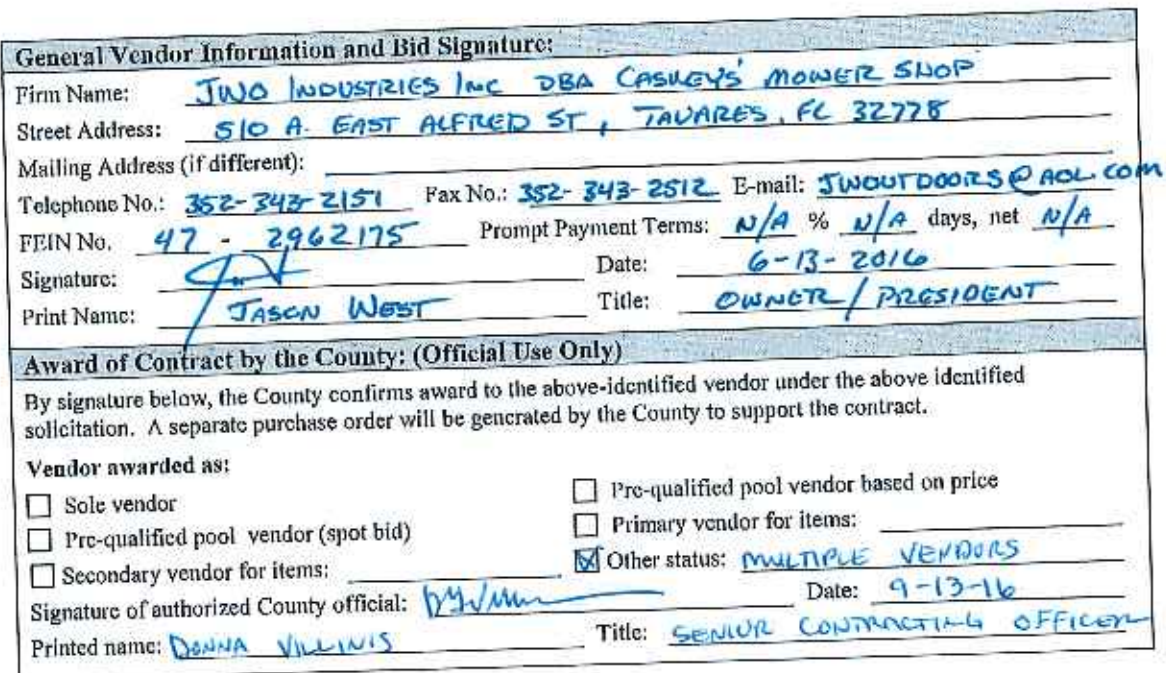 General Vendor Information and Bid Signature:
Firm Name: JWO INDUSTRIES INC DBA CASKEYS' MOWER SHOP
Street Address: 510 A. EAST ALFRED ST, TAVARES, FL 32778
Mailing Address (if different):
Telephone No.: 352-343-2151 Fax No.: 352-343-2512 E-mail: JWOUTDOORS@AOL.COM
FEIN No. 47 - 2962175 Prompt Payment Terms: N/A % N/A days, net N/A
Signature: Date: 6-13-2016
Print Name: JASON WEST Title: OWNER / PRESIDENT
Award of Contract by the County: (Official Use Only)
By signature below, the County confirms award to the above-identified vendor under the above identified
solicitation. A separate purchase order will be generated by the County to support the contract.
Vendor awarded as:
Sole vendor Pre-qualified pool vendor based on price
Pre-qualified pool vendor (spot bid) Primary vendor for items:
Secondary vendor for items: Other status: MULTIPLE VENDORS
Signature of authorized County official: Date: 9-13-16
Printed name: DONNA VILLINIS Title: SENIOR CONTRACTING OFFICER